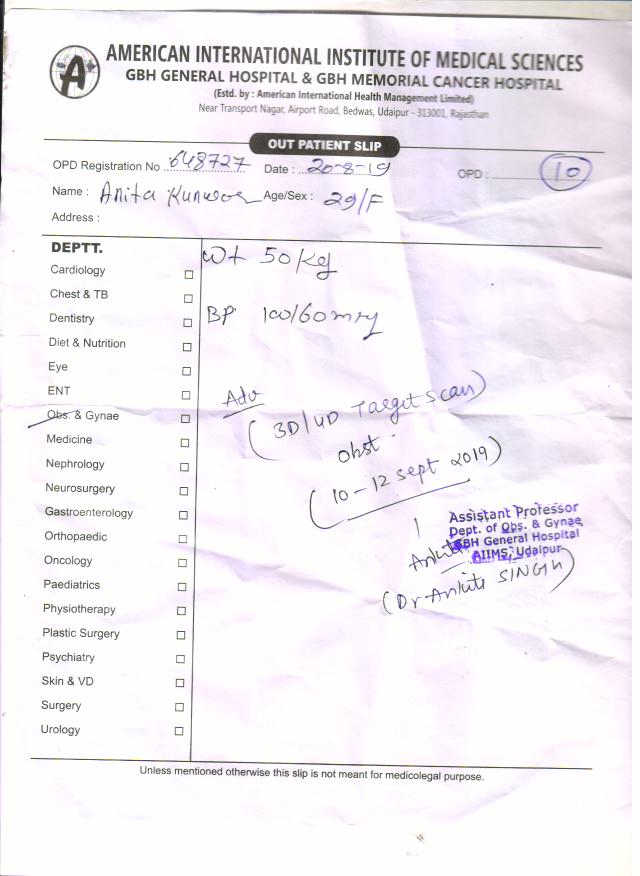 A
AMERICAN INTERNATIONAL INSTITUTE OF MEDICAL SCIENCES
GBH GENERAL HOSPITAL & GBH MEMORIAL CANCER HOSPITAL
(Estd. by : American International Health Management Limited)
Near Transport Nagar, Airport Road, Bedwas, Udaipur - 313001, Rajasthan
OUT PATIENT SLIP
OPD Registration No 648727 Date : 20-8-19 OPD : 10
Name : Anita Kunwar Age/Sex : 29/F
Address :
DEPTT.
Wt 50 kg
Cardiology
Chest & TB
Dentistry
BP 100/60 mmHg
Diet & Nutrition
Eye
ENT
Adv
Obs. & Gynae
(3D/4D Target Scan)
Medicine
Obst.
Nephrology
(10-12 sept 2019)
Neurosurgery
Gastroenterology
Assistant Professor
Dept. of Obs. & Gynae,
Orthopaedic
GBH General Hospital
AIIMS, Udaipur
Oncology
(Dr Ankita SINGH)
Paediatrics
Physiotherapy
Plastic Surgery
Psychiatry
Skin & VD
Surgery
Urology
Unless mentioned otherwise this slip is not meant for medicolegal purpose.